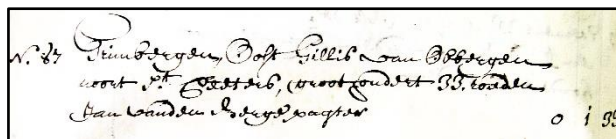 N.º 87 Trimbergen, Oost Gillis van Obbergen
noort Pr. Peeters, groot hondert 33. roeden
Jan vanden Berge pagter 0 1 33